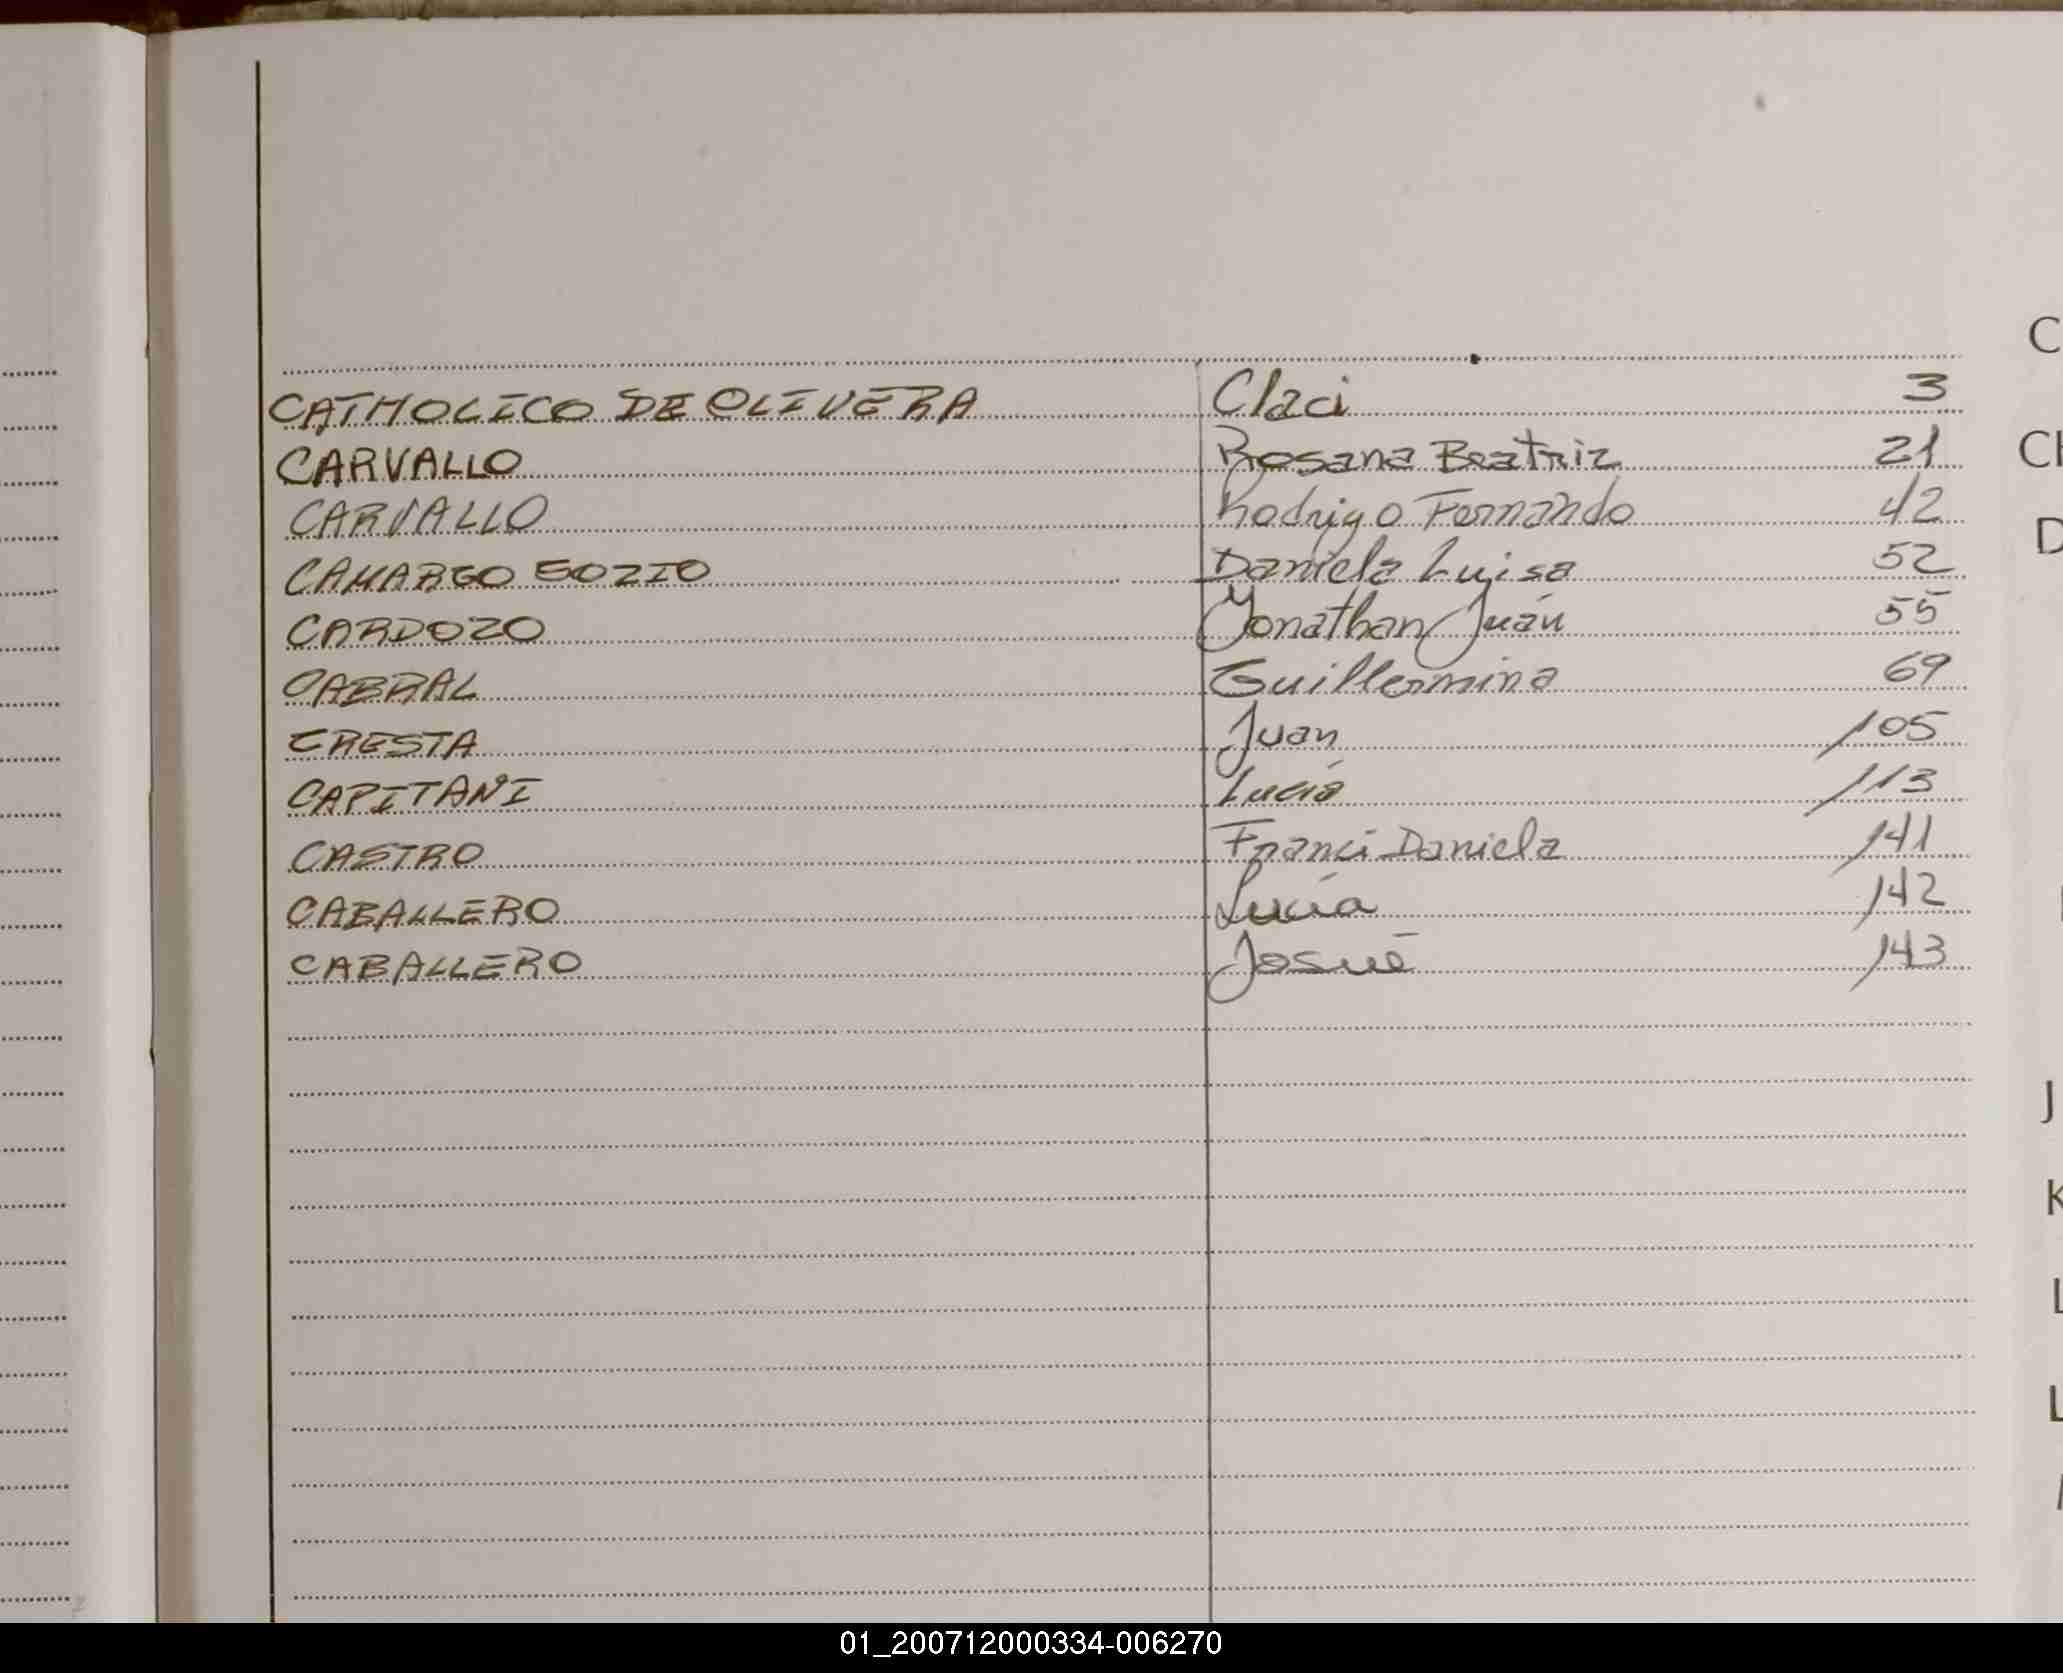 CATHOLICO DE OLIVERA Claci 3
CARVALLO Rosana Beatriz 21
CARVALLO Rodrigo Fernando 42
CAMARGO SOZIO Daniela Luisa 52
CARDOZO Jonathan Juan 55
CABRAL Guillermina 69
CRESTA Juan 105
CAPITANI Lucía 113
CASTRO Franci Daniela 141
CABALLERO Lucía 142
CABALLERO Josué 143
C
CH
D
J
K
L
L
01_200712000334-006270